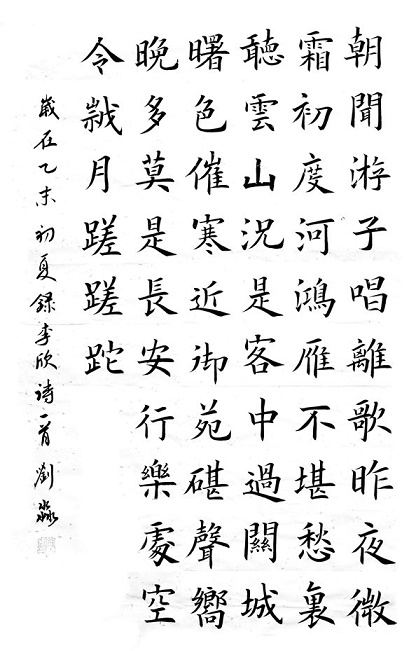 朝聞游子唱離歌昨夜微
霜初度河鴻雁不堪愁裏
聽雲山況是客中過關城
曙色催寒近御苑碪聲嚮
晚多莫是長安行樂處空
令歲月蹉蹉跎
歲在乙未初夏錄李欣詩一首劉淼